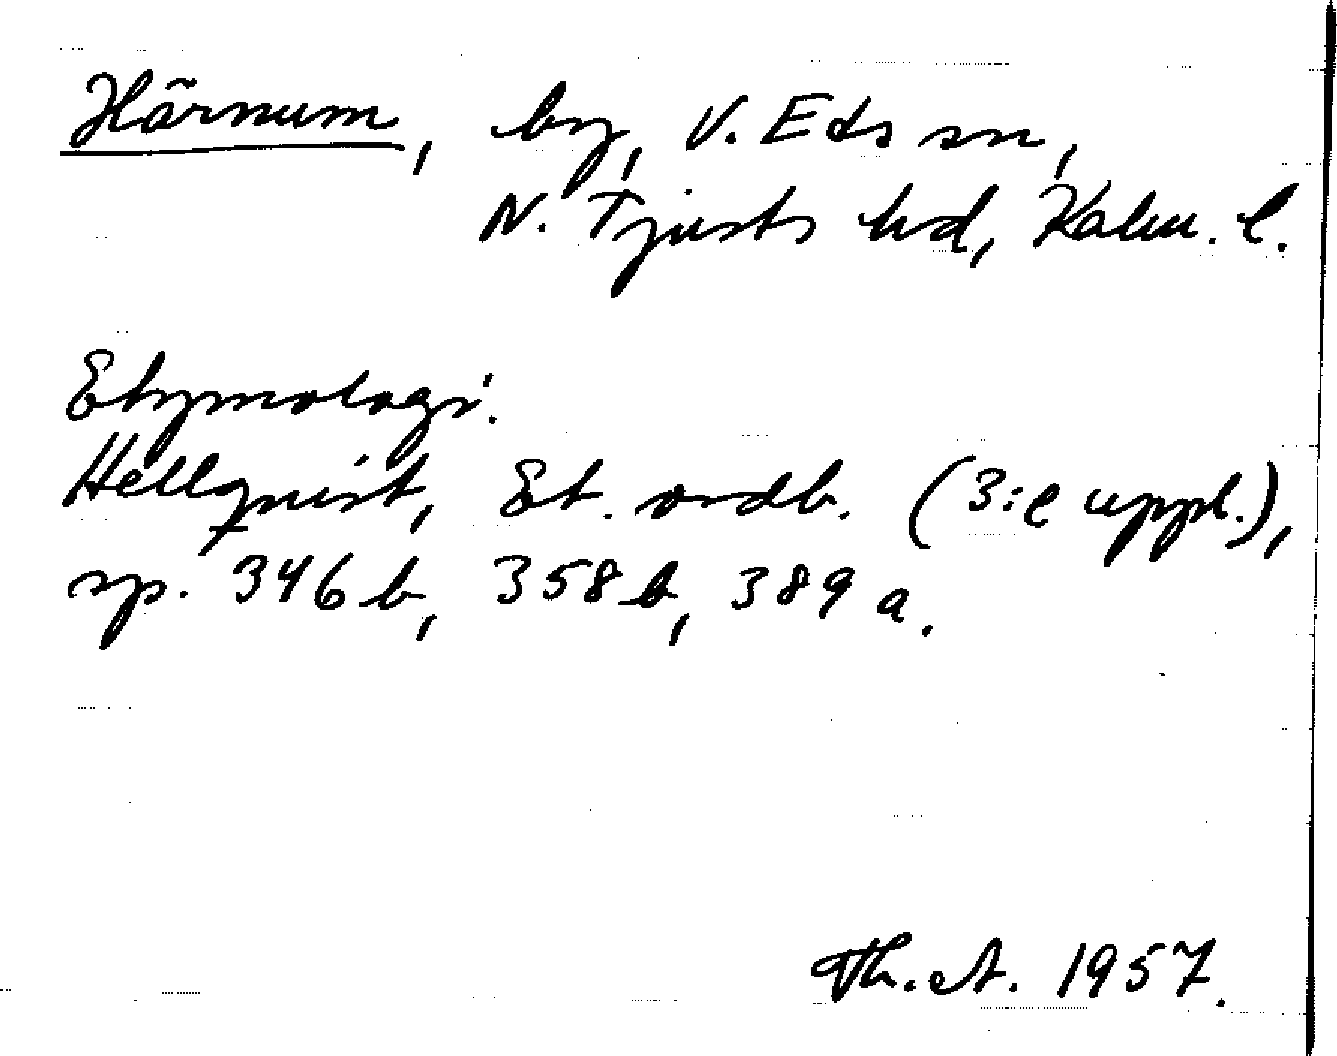 Härnum, by, V. Eds sn,
N. Tjusts hd, Kalm. l.
Etymologi.
Hellquist, Et. ordb. (3:e uppl.),
sp. 346 b, 358 b, 389 a.
Th. A. 1957.